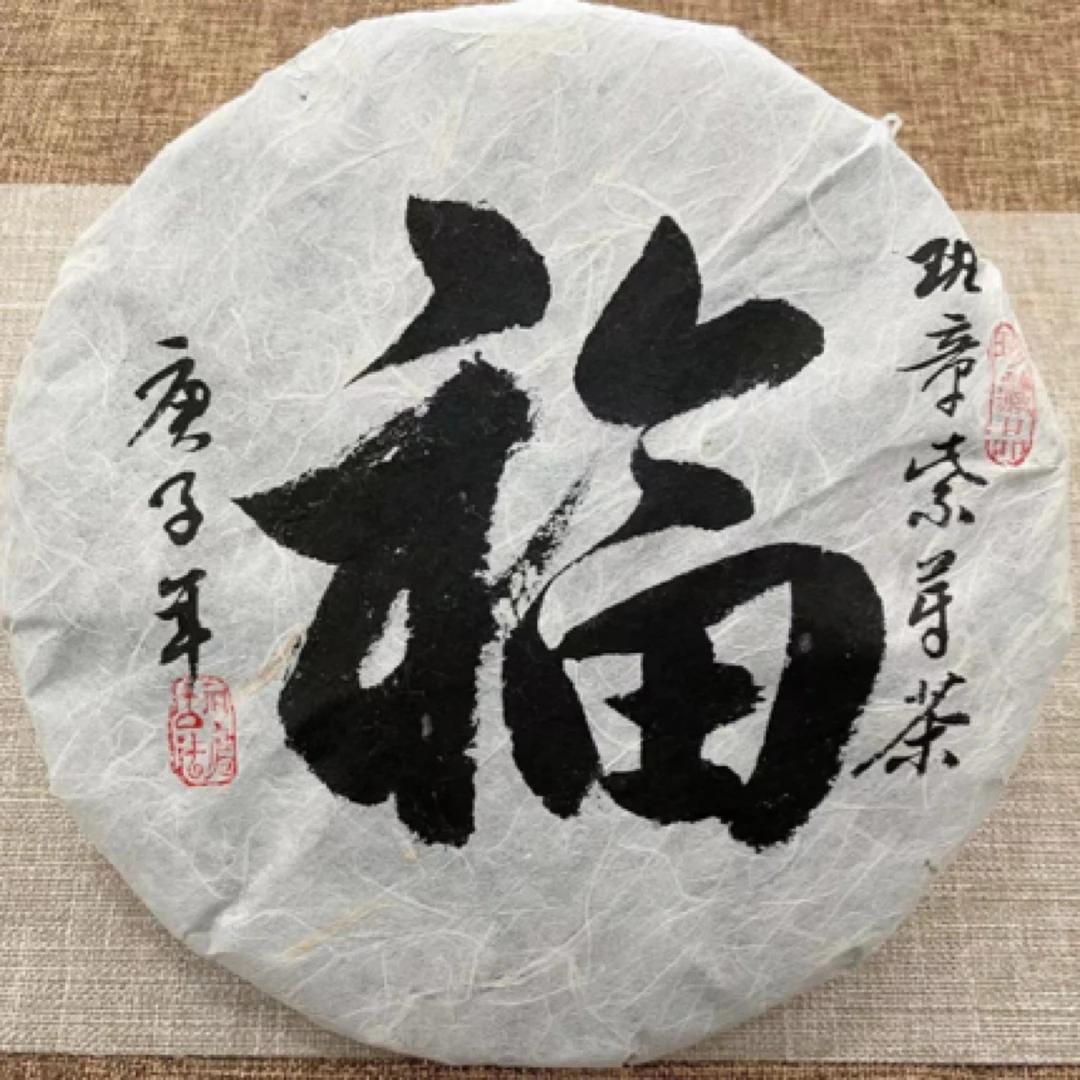 班章紫芽茶
福
庚子年